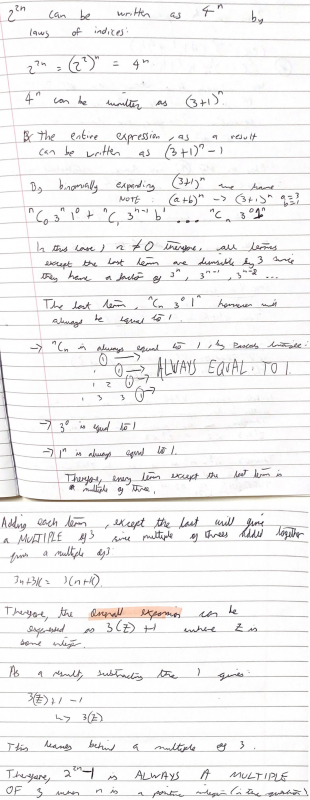 2²ⁿ can be written as 4ⁿ by
laws of indices:
2²ⁿ = (2²)ⁿ = 4ⁿ
4ⁿ can be written as (3+1)ⁿ.
the entire expression, as a result
can be written as (3+1)ⁿ - 1
By binomially expanding (3+1)ⁿ we have
NOTE: (a+b)ⁿ -> (3+1)ⁿ a=3 b=1
ⁿC₀ 3ⁿ 1⁰ + ⁿC₁ 3ⁿ⁻¹ b¹ ... ⁿCₙ 3⁰ 1ⁿ
In this case, n ≠ 0 therefore, all terms
except the last term are divisible by 3 since
they have a factor of 3ⁿ, 3ⁿ⁻¹, 3ⁿ⁻² ...
The last term, ⁿCₙ 3⁰ 1ⁿ however will
always be equal to 1.
-> ⁿCₙ is always equal to 1, by Pascals triangle:
1 ->
1 1 ->
1 2 1 -> ALWAYS EQUAL TO 1
1 3 3 1 ->
-> 3⁰ is equal to 1
-> 1ⁿ is always equal to 1.
Therefore, every term except the last term is
a multiple of three.
Adding each term, except the last will give
a MULTIPLE of 3 since multiple of threes added together
gives a multiple of 3:
3n+3k = 3(n+k).
Therefore, the overall expression can be
expressed as 3(z) + 1 where z is
some integer.
As a result, subtracting the 1 gives:
3(z)+1 -1
↳ 3(z)
This leaves behind a multiple of 3.
Therefore, 2²ⁿ-1 is ALWAYS A MULTIPLE
OF 3 when n is a positive integer (in the question)